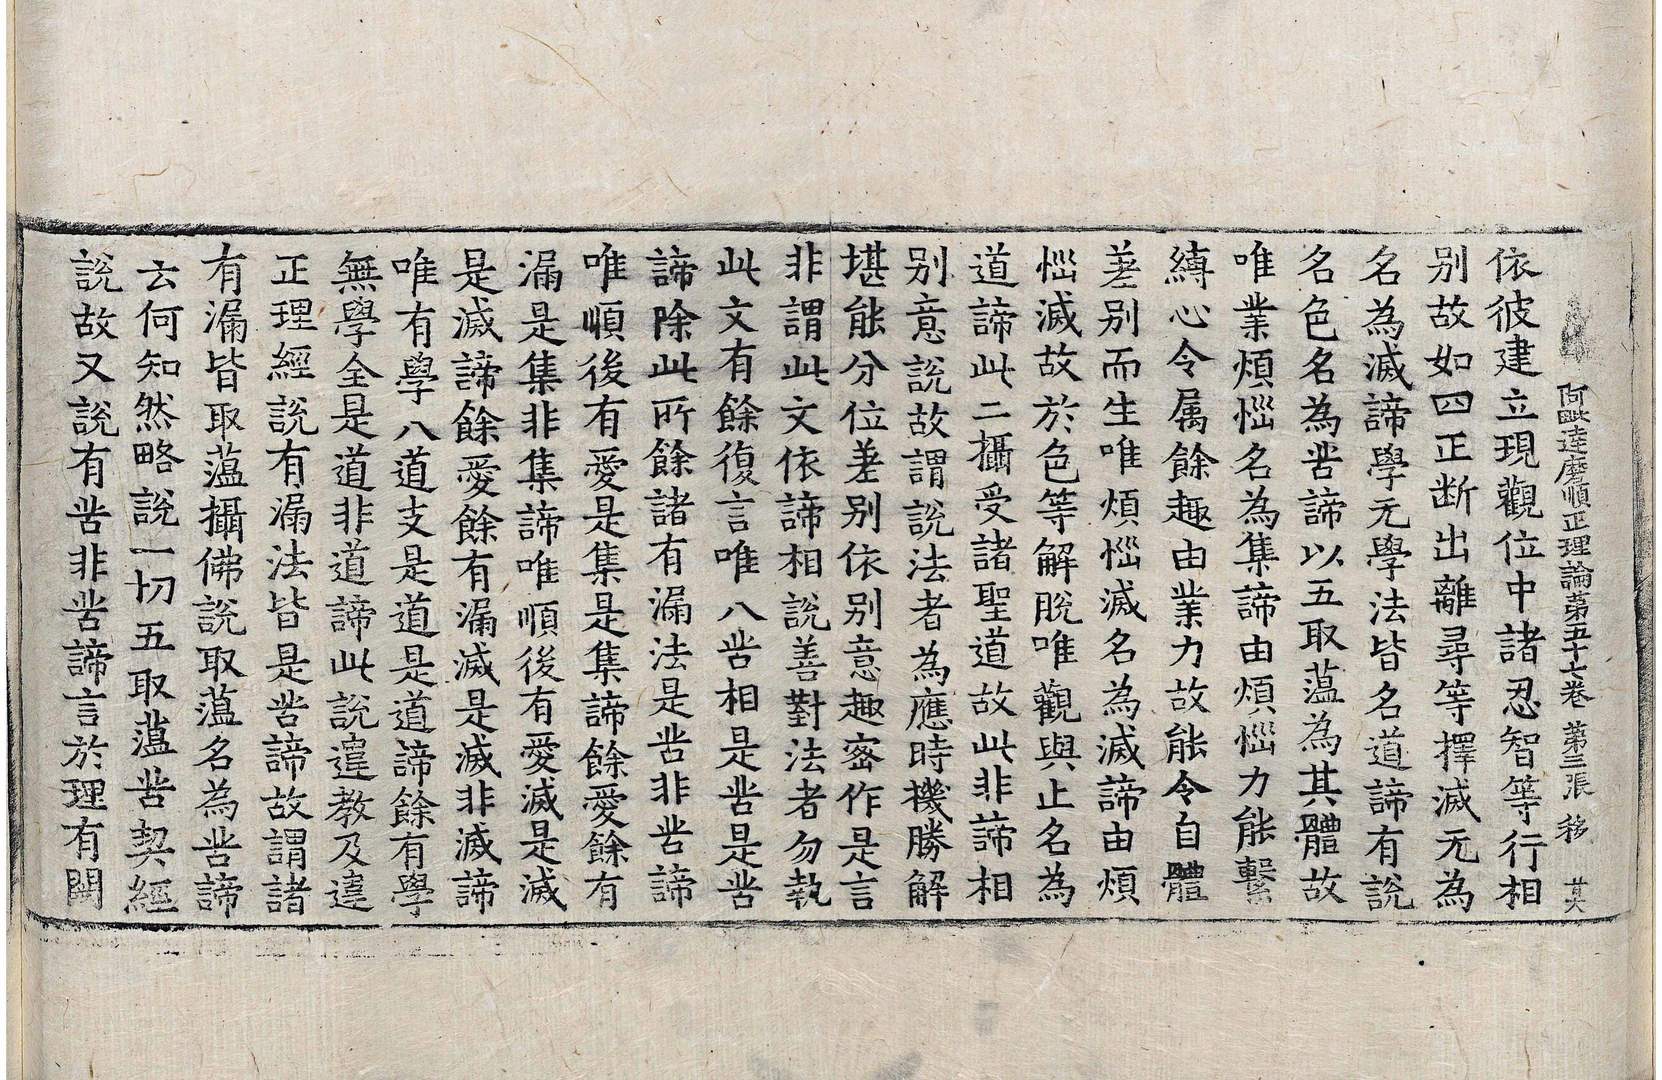 阿毗達磨順正理論第五十七卷 第三張 移
依彼建立現觀位中諸忍智等行相
别故如四正断出離尋等擇滅无為
名為滅諦學无學法皆名道諦有說
名色名為苦諦以五取蕴為其體故
唯業煩惱名為集諦由煩惱力能繫
縛心令属餘趣由業力故能令自體
差别而生唯煩惱滅名為滅諦由煩
惱滅故於色等解脫唯觀與止名為
道諦此二攝受諸聖道故此非諦相
别意說故謂說法者為應時機勝解
堪能分位差别依别意趣密作是言
非謂此文依諦相說善對法者勿執
此文有餘復言唯八苦相是苦是苦
諦除此所餘諸有漏法是苦非苦諦
唯順後有愛是集是集諦餘愛餘有
漏是集非集諦唯順後有愛滅是滅
是滅諦餘愛餘有漏滅是滅非滅諦
唯有學八道支是道是道諦餘有學
無學全是道非道諦此說違教及違
正理經說有漏法皆是苦諦故謂諸
有漏皆取蕰攝佛說取蕰名為苦諦
云何知然略說一切五取蕰苦契經
說故又說有苦非苦諦言於理有闕